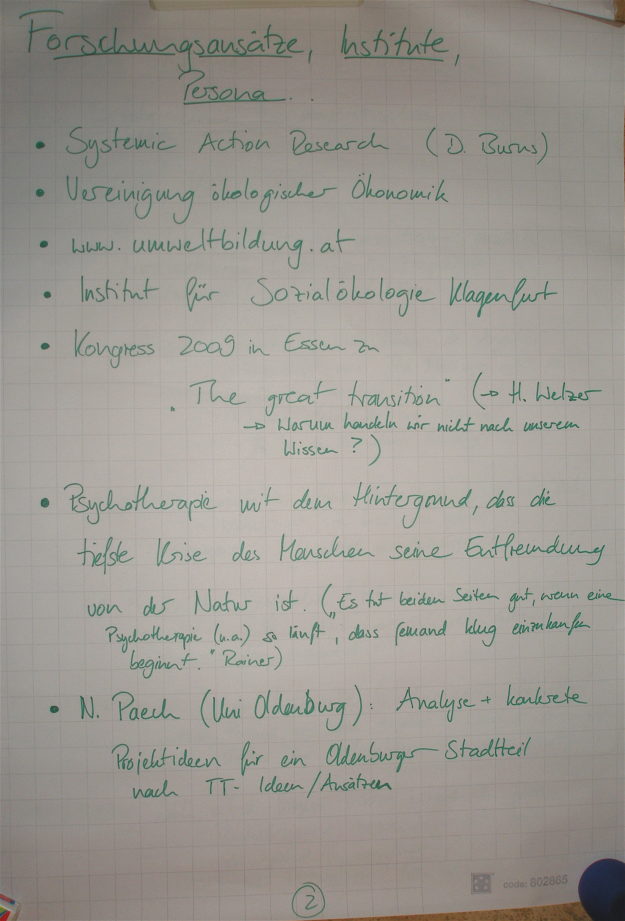 Forschungsansätze, Institute,
Persona..
• Systemic Action Research (D. Burns)
• Vereinigung ökologischer Ökonomik
• www.umweltbildung.at
• Institut für Sozialökologie Klagenfurt
• Kongress 2009 in Essen zu
"The great transition" (→ H. Welzer
→ Warum handeln wir nicht nach unserem
Wissen?)
• Psychotherapie mit dem Hintergrund, dass die
tiefste Krise des Menschen seine Entfremdung
von der Natur ist. („Es tut beiden Seiten gut, wenn eine
Psychotherapie (u.a.) so läuft, dass jemand klug einzukaufen
beginnt." Rainer)
• N. Paech (Uni Oldenburg): Analyse + konkrete
Projektideen für ein Oldenburger Stadtteil
nach TT- Ideen/Ansätzen
code: 802865
2